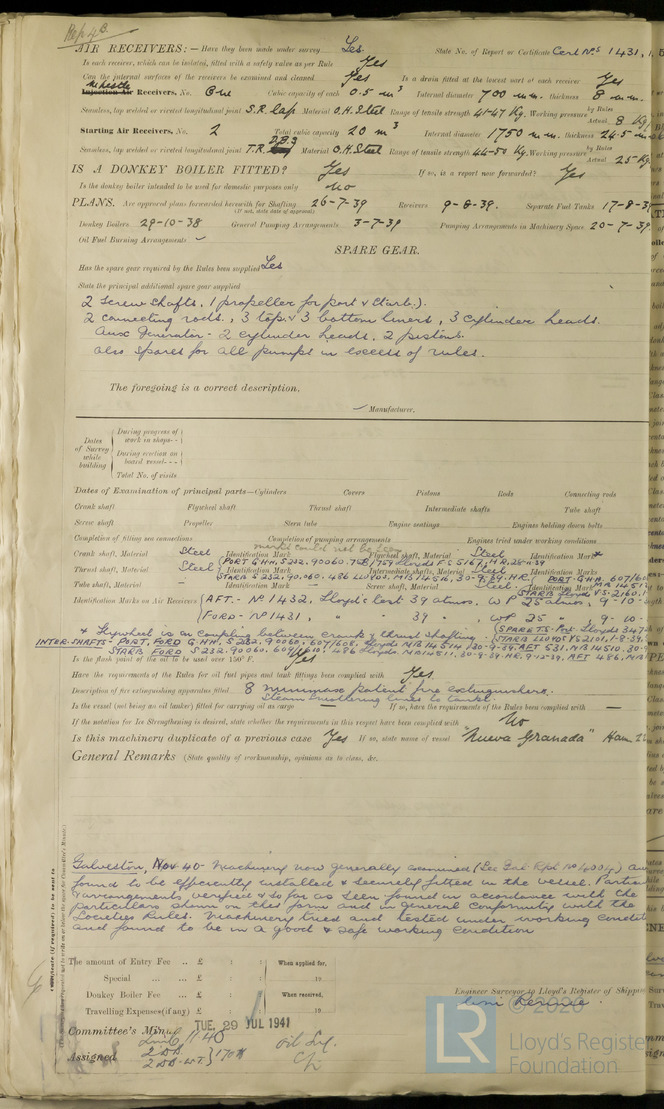 Rep. 4B.
AIR RECEIVERS:— Have they been made under survey Yes State No. of Report or Certificate Cert Nos 1431,
Is each receiver, which can be isolated, fitted with a safety valve as per Rule Yes
Can the internal surfaces of the receivers be examined and cleaned Yes Is a drain fitted at the lowest part of each receiver Yes
Whistle Injection Air Receivers, No. One Cubic capacity of each 0.5 m³ Internal diameter 700 m.m. thickness 8 m.m.
Seamless, lap welded or riveted longitudinal joint S.R. lap Material O.H. Steel Range of tensile strength 41-47 Kg. Working pressure by Rules Actual 8 Kg.
Starting Air Receivers, No. 2 Total cubic capacity 20 m³ Internal diameter 1750 m.m. thickness 24.5 m.m.
Seamless, lap welded or riveted longitudinal joint T.R. D.B.S Material O.H. Steel Range of tensile strength 44-50 Kg. Working pressure by Rules Actual 25 Kg.
IS A DONKEY BOILER FITTED? Yes If so, is a report now forwarded? Yes
Is the donkey boiler intended to be used for domestic purposes only No
PLANS. Are approved plans forwarded herewith for Shafting 26-7-39 Receivers 9-8-39. Separate Fuel Tanks 17-8-39
(If not, state date of approval)
Donkey Boilers 29-10-38 General Pumping Arrangements 3-7-39 Pumping Arrangements in Machinery Space 20-7-39.
Oil Fuel Burning Arrangements
SPARE GEAR.
Has the spare gear required by the Rules been supplied Yes
State the principal additional spare gear supplied
2 Screw Shafts, 1 propeller for port & Starb.).
2 connecting rods, 3 top & 3 bottom liners, 3 cylinder heads.
Aux Generator - 2 cylinder heads, 2 pistons.
also spares for all pumps in excess of rules.
The foregoing is a correct description.
Manufacturer.
Dates of Survey while building
During progress of work in shops--
During erection on board vessel---
Total No. of visits
Dates of Examination of principal parts—Cylinders Covers Pistons Rods Connecting rods
Crank shaft Flywheel shaft Thrust shaft Intermediate shafts Tube shaft
Screw shaft Propeller Stern tube Engine seatings Engines holding down bolts
Completion of fitting sea connections Completion of pumping arrangements Engines tried under working conditions
marks could not be seen
Crank shaft, Material Steel Identification Mark Flywheel shaft, Material Steel Identification Mark
Thrust shaft, Material Steel Identification Mark Intermediate shafts, Material Steel Identification Marks
Tube shaft, Material Identification Mark Screw shaft, Material Steel Identification Mark
Identification Marks on Air Receivers AFT.- No 1432, Lloyd's test 39 atmos. WP 25 atmos, 9-10-
FORD- No 1431, " " 39 " WP 25 " 9-10-
* Flywheel is on coupling between crank & thrust shafting.
Is the flash point of the oil to be used over 150° F. Yes
Have the requirements of the Rules for oil fuel pipes and tank fittings been complied with Yes.
Description of fire extinguishing apparatus fitted 8 minimax patent fire extinguishers.
Steam smothering lines to tanks.
Is the vessel (not being an oil tanker) fitted for carrying oil as cargo — If so, have the requirements of the Rules been complied with —
If the notation for Ice Strengthening is desired, state whether the requirements in this respect have been complied with No
Is this machinery duplicate of a previous case Yes If so, state name of vessel "Nueva Granada" Ham
General Remarks (State quality of workmanship, opinions as to class, &c.
Galveston, Nov 40 - Machinery now generally examined (See Gal Rpt No 4004) and
found to be efficiently installed & securely fitted in the vessel.
& arrangements verified & so far as seen found in accordance with the
particulars shown on this form and in general conformity with the
Societies Rules. Machinery tried and tested under working condit
and found to be in a good & safe working condition
The amount of Entry Fee .. £ : : When applied for,
Special ... ... £ : : 19
Donkey Boiler Fee ... £ : : When received,
Travelling Expenses (if any) £ : : 19
Engineer Surveyor to Lloyd's Register of Shipping
Committee's Minute TUE. 29 JUL 1941
Assigned
2 DB
2 DB-WT.
© 2020
LR Lloyd's Register
Foundation